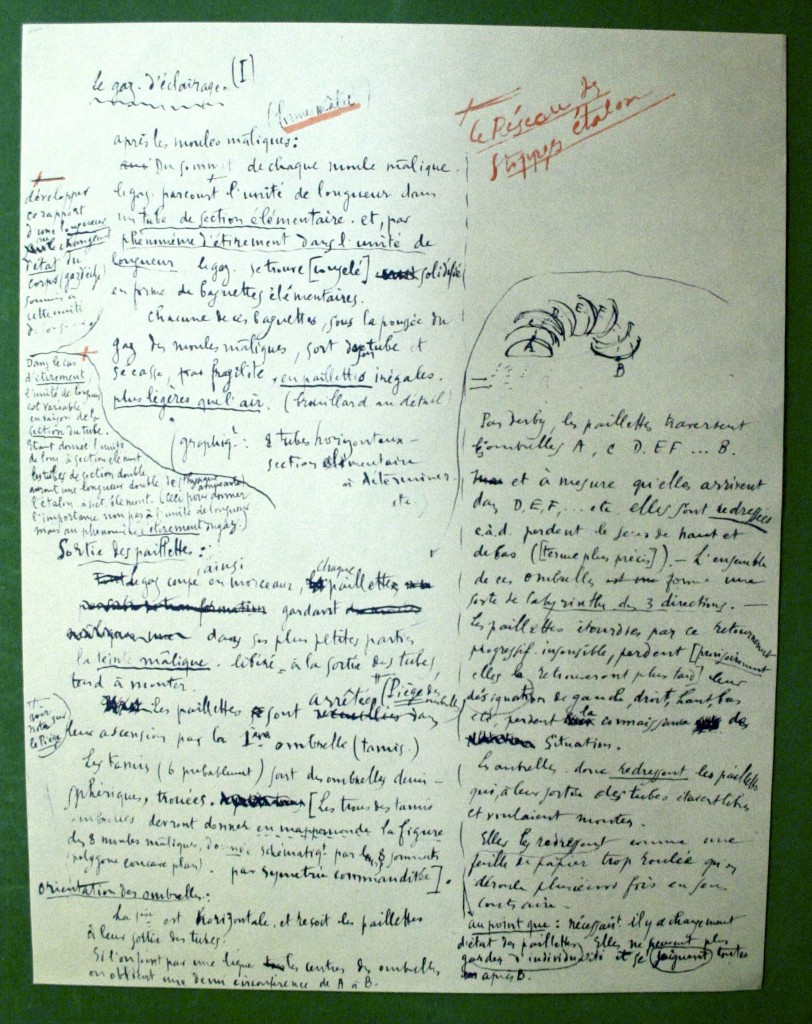 le gaz d'éclairage. (I)
après les moules mâliques:
Du sommet de chaque moule mâlique.
le gaz parcourt l'unité de longueur dans
un tube de section élémentaire. et, par
phénomène d'étirement dans l'unité de
longueur le gaz se trouve [congelé] solidifié
en forme de baguettes élémentaires.
Chacune de ces baguettes, sous la poussée du
gaz des moules mâliques, sort de son tube et
se casse, par fragilité, en paillettes inégales.
plus légères que l'air. (brouillard au détail)
(graphiq.: 8 tubes horizontaux -
section élémentaire
à déterminer.
etc.
développer
ce rapport
d'une longueur
ou changement
d'état du
corps (gaz d'écl.)
soumis à
cette unité
de longueur
Dans le cas
d'étirement,
l'unité de longueur
est variable
en raison de la
section du tube.
Étant donnée l'unité
de long. à section élément.
les tubes de section double
auront une longueur double
(Ceci pour donner
l'importance non pas à l'unité de longueur
mais au phénomène d'étirement du gaz.)
Sortie des paillettes:
le gaz coupé ainsi en morceaux, chaque paillette
gardant
dans ses plus petites parties
la teinte mâlique. libéré, à la sortie des tubes,
tend à monter.
Les paillettes sont arrêtées dans
leur ascension par la 1ère ombrelle (tamis.)
(Piège des ombrelles
voir
note sur
le Piège
Les tamis (6 probablement) sont des ombrelles demi-
sphériques, trouées. [Les trous des tamis
ombrelles devront donner en mappemonde la figure
des 8 moules mâliques, donnée schématiq. par les 8 sommets
(polygone concave plan). par symétrie commanditée].
Orientation des ombrelles:
La 1ère est horizontale. et reçoit les paillettes
à leur sortie des tubes.
Si l'on joint par une ligne les centres des ombrelles
on obtient une demi circonférence de A à B.
le Réseau des
stoppages étalon
A
D
E
F
B
Par derby, les paillettes traversent
l'ombrelles A, C D. E F ... B.
et à mesure qu'elles arrivent
dans D, E, F, ... etc. elles sont redressées
c.à.d. perdent le sens de haut et
de bas ([terme plus précis]). — L'ensemble
de ces ombrelles forme une
sorte de labyrinthe des 3 directions. —
Les paillettes étourdies par ce retournement
progressif insensible, perdent [provisoirement
elles la retrouveront plus tard] leur
désignation de gauche, droit, haut, bas
etc, perdent la connaissance de
Situation.
Les ombrelles donc redressent les paillettes
qui, à leur sortie des tubes étaient libres
et voulaient monter.
Elles les redressent comme une
feuille de papier trop roulée qu'on
déroule plusieurs fois en sens
contraire —
au point que: nécessairt il y a changement
d'état des paillettes. Elles ne peuvent plus
garder d'individualité et se joignent toutes
après B.